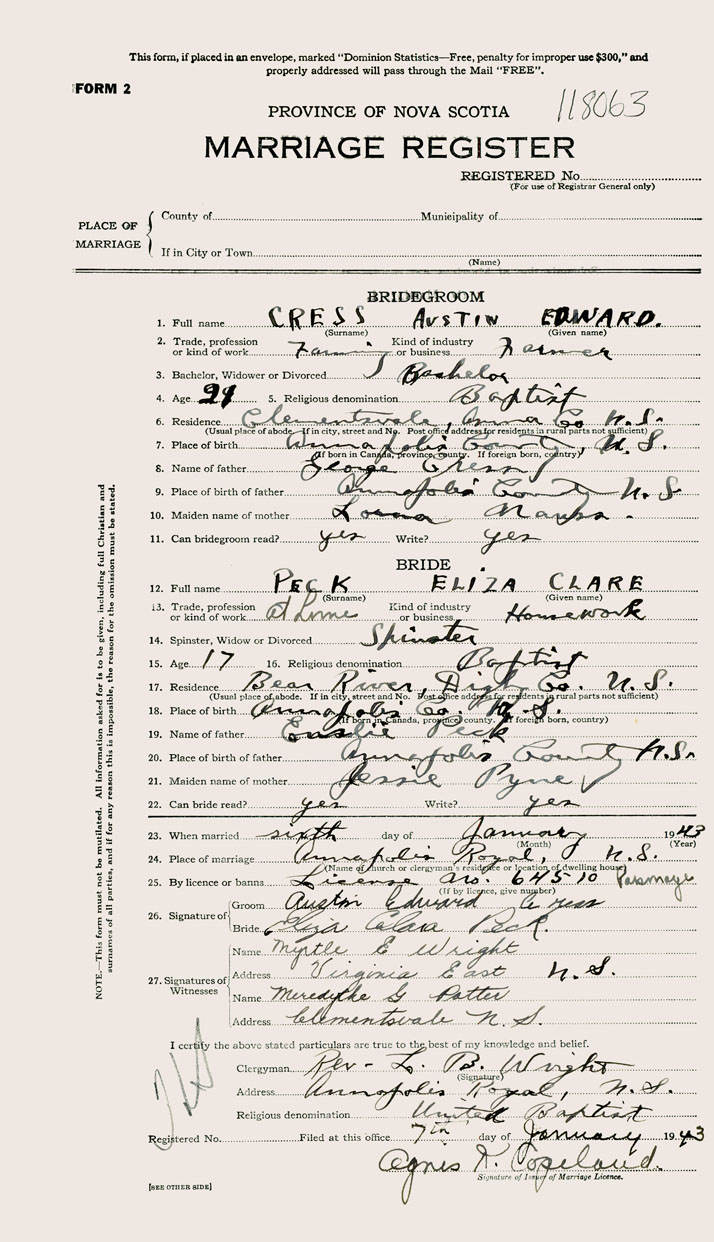 This form, if placed in an envelope, marked "Dominion Statistics—Free, penalty for improper use $300," and
properly addressed will pass through the Mail "FREE".
FORM 2
118063
PROVINCE OF NOVA SCOTIA
MARRIAGE REGISTER
REGISTERED No.
(For use of Registrar General only)
PLACE OF MARRIAGE
County of Municipality of
If in City or Town
(Name)
BRIDEGROOM
1. Full name CRESS AUSTIN EDWARD.
(Surname) (Given name)
2. Trade, profession or kind of work Farming Kind of industry or business Farmer
3. Bachelor, Widower or Divorced Bachelor
4. Age 5. Religious denomination Baptist
6. Residence Clementsvale, Anna Co N.S.
(Usual place of abode. If in city, street and No. Post office address for residents in rural parts not sufficient)
7. Place of birth Annapolis County, N.S.
(If born in Canada, province, county. If foreign born, country)
8. Name of father George Cress
9. Place of birth of father Annapolis County N.S.
10. Maiden name of mother Lorna
11. Can bridegroom read? yes Write? yes
BRIDE
12. Full name PECK ELIZA CLARE
(Surname) (Given name)
13. Trade, profession or kind of work at home Kind of industry or business Housework
14. Spinster, Widow or Divorced Spinster
15. Age 17 16. Religious denomination Baptist
17. Residence Bear River, Digby Co. N.S.
(Usual place of abode. If in city, street and No. Post office address for residents in rural parts not sufficient)
18. Place of birth Annapolis Co. N.S.
(If born in Canada, province, county. If foreign born, country)
19. Name of father Peck
20. Place of birth of father Annapolis County N.S.
21. Maiden name of mother Jessie Pyne
22. Can bride read? yes Write? yes
23. When married sixth day of January 1943
(Month) (Year)
24. Place of marriage Annapolis Royal, N.S.
(Name of church or clergyman's residence or location of dwelling house)
25. By licence or banns License No. 64510 Parsonage
(If by licence, give number)
26. Signature of
Groom Austin Edward Cress
Bride Eliza Clara Peck.
27. Signatures of Witnesses
Name Myrtle E Wright
Address Virginia East N.S.
Name Meredythe G Potter
Address Clementsvale N.S.
I certify the above stated particulars are true to the best of my knowledge and belief.
Clergyman Rev- L. B. Wright
(Signature)
Address Annapolis Royal, N.S.
Religious denomination United Baptist
Registered No. Filed at this office 7th day of January 1943
Agnis K. Copeland.
Signature of Issuer of Marriage Licence.
[SEE OTHER SIDE]
NOTE.—This form must not be mutilated. All information asked for is to be given, including full Christian and
surnames of all parties, and if for any reason this is impossible, the reason for the omission must be stated.